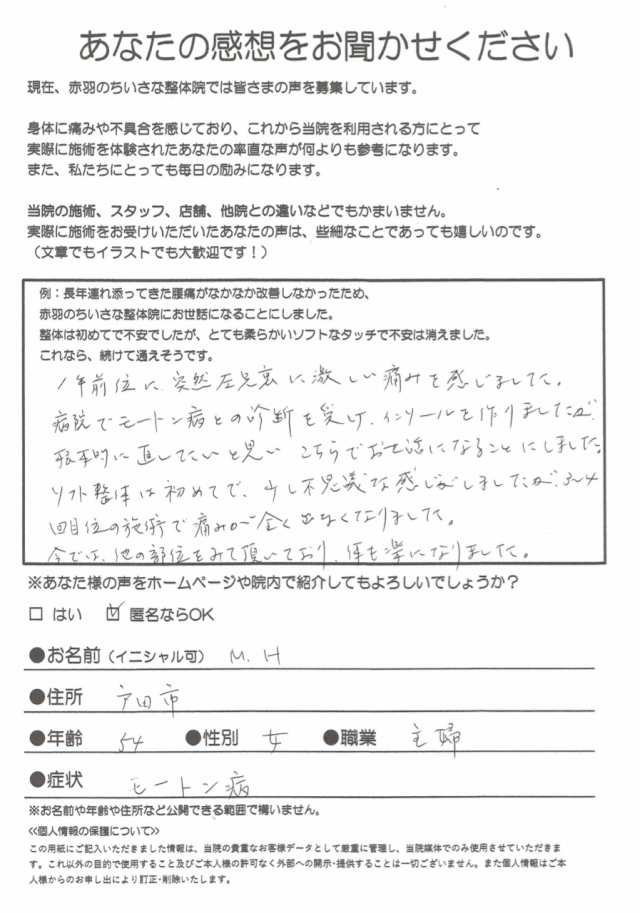 あなたの感想をお聞かせください
現在、赤羽のちいさな整体院では皆さまの声を募集しています。
身体に痛みや不具合を感じており、これから当院を利用される方にとって
実際に施術を体験されたあなたの率直な声が何よりも参考になります。
また、私たちにとっても毎日の励みになります。
当院の施術、スタッフ、店舗、他院との違いなどでもかまいません。
実際に施術をお受けいただいたあなたの声は、些細なことであっても嬉しいのです。
（文章でもイラストでも大歓迎です！）
例：長年連れ添ってきた腰痛がなかなか改善しなかったため、
赤羽のちいさな整体院にお世話になることにしました。
整体は初めてで不安でしたが、とても柔らかいソフトなタッチで不安は消えました。
これなら、続けて通えそうです。
1年前位に、突然左足裏に激しい痛みを感じました。
病院でモートン病との診断を受け、インソールを作りましたが、
根本的に直したいと思い こちらでお世話になることにしました。
ソフト整体は初めてで、少し不思議な感じがしましたが、3〜4
回目位の施術で痛みが全く出なくなりました。
今では、他の部位をみて頂いており、体も楽になりました。
※あなた様の声をホームページや院内で紹介してもよろしいでしょうか？
□ はい ☑ 匿名ならOK
●お名前（イニシャル可） M.H
●住所 戸田市
●年齢 54 ●性別 女 ●職業 主婦
●症状 モートン病
※お名前や年齢や住所など公開できる範囲で構いません。
≪個人情報の保護について≫
この用紙にご記入いただきました情報は、当院の貴重なお客様データとして厳重に管理し、当院媒体でのみ使用させていただきま
す。これ以外の目的で使用すること及びご本人様の許可なく外部への開示・提供することは一切ございません。また個人情報はご本
人様からのお申し出により訂正・削除いたします。